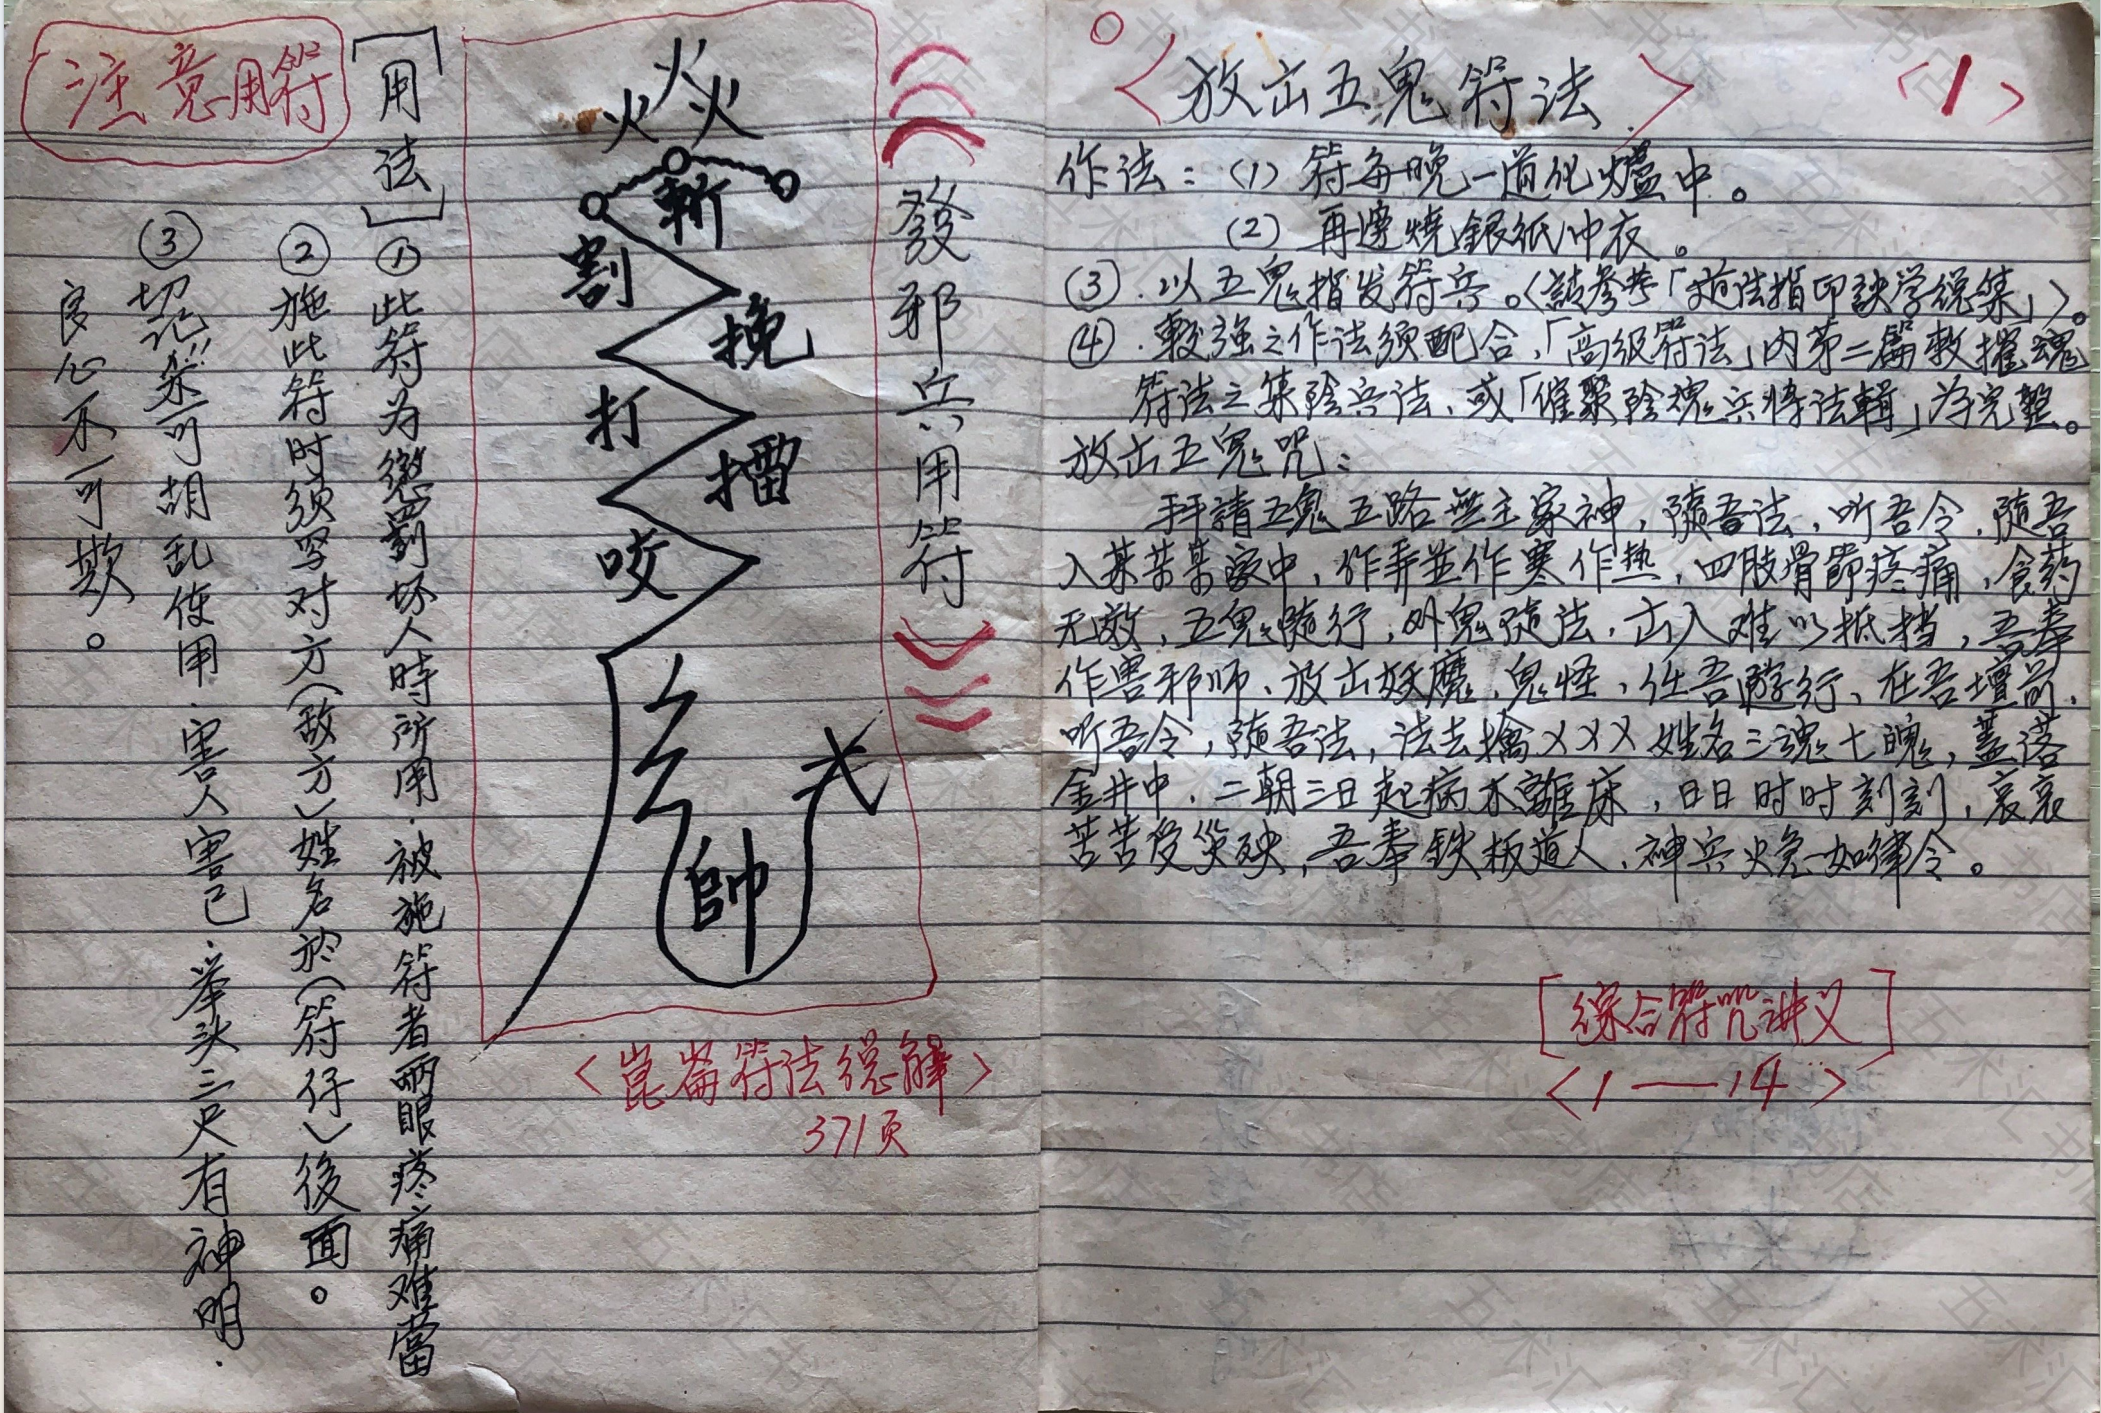 <放出五鬼符法>
<1>
作法：(1) 符每晚一道化爐中。
(2) 再边燒銀纸冲衣。
(3).以五鬼指发符兵。(請参考「道法指印訣学總集」)。
(4).較强之作法须配合,「高级符法」内第二篇敕摧魂
符法之集陰兵法、或「催聚陰魂兵將法輯」为完整。
放出五鬼咒：
拜請五鬼五路無主家神,隨吾法,听吾令,随吾
入某某某家中,作弄並作寒作热,四肢骨節疼痛,食药
无效,五鬼随行,外鬼随法,出入难以抵挡,吾奉
作害邪师、放出妖魔、鬼怪、任吾遊行、在吾壇前,
听吾令,隨吾法,法去擒XXX姓名三魂七魄,蓋落
金井中,二朝三日起病不離床,日日时时刻刻,哀哀
苦苦受災殃,吾奉铁板道人、神兵火急如律令。
[综合符咒讲义]
<1——14>
發邪兵用符
火火火
斬
割
挽
打
擂
咬
帥
<崑崙符法總解>
371页
[用法]
①此符为懲罰坏人時所用.被施符者兩眼疼痛难當
②施此符时须写对方(敌方)姓名於(符仔)後面。
③切记!!不可胡乱使用.害人害己.举头三尺有神明.
良心不可欺。
注意用符